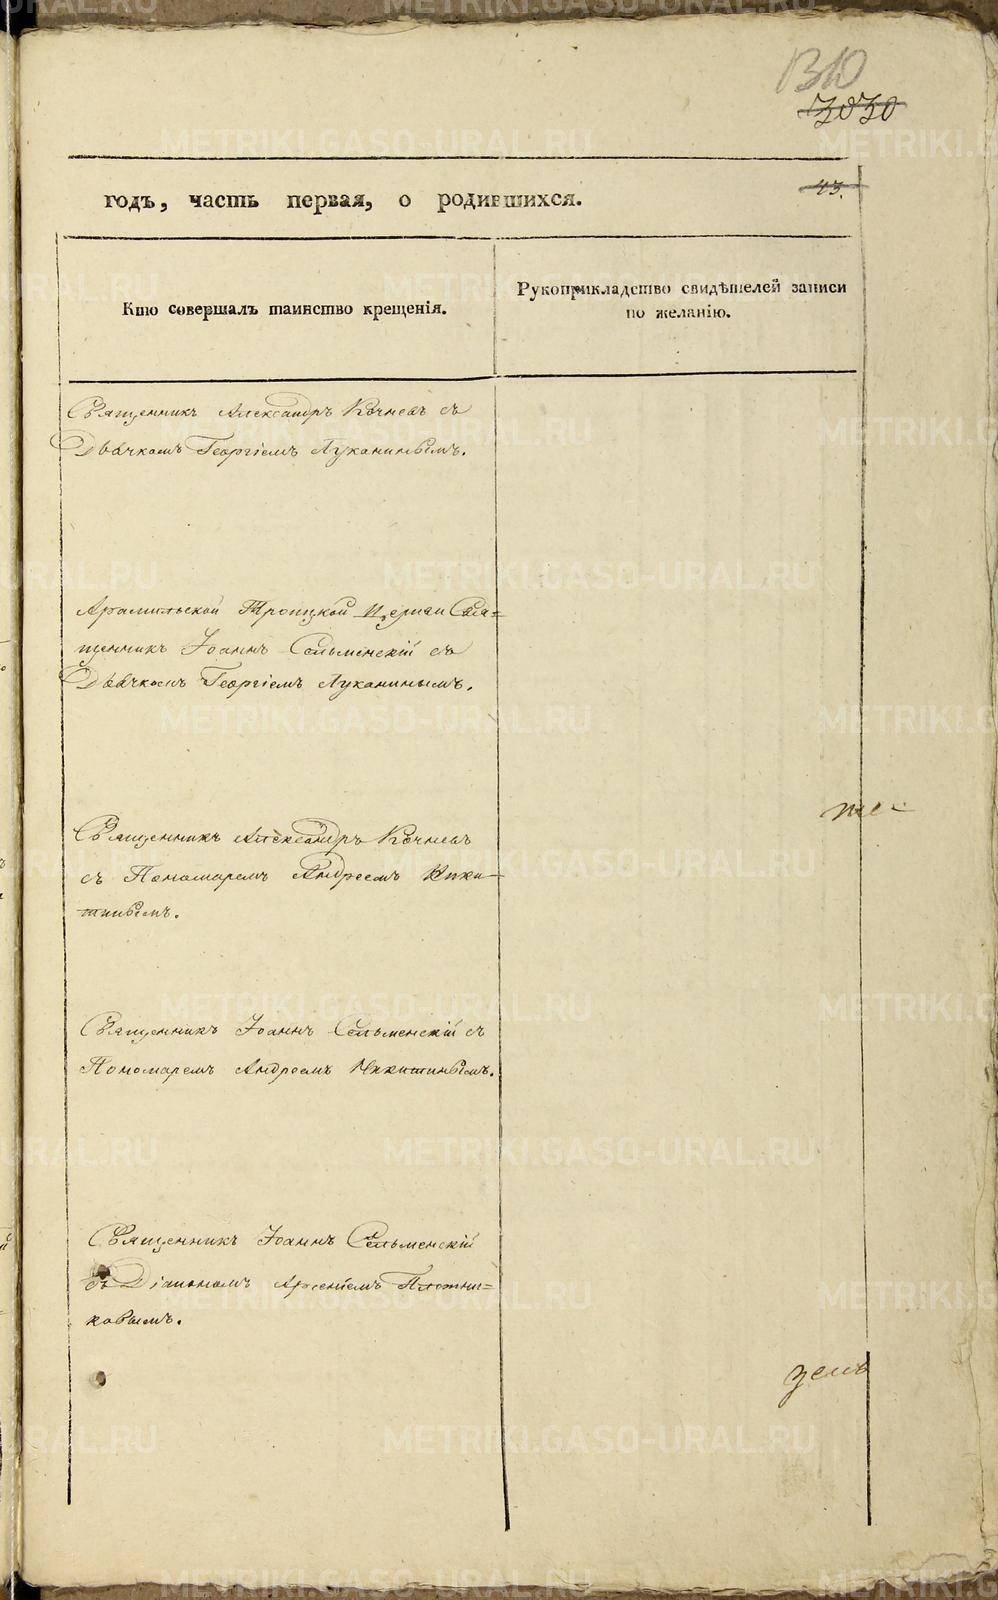 1310
3030
43.
годъ, часть первая, о родившихся.
Кто совершалъ таинство крещенія.
Рукоприкладство свидѣтелей записи
по желанію.
Священникъ Александръ Кочневъ съ
Дьячкомъ Георгіемъ Луканинымъ.
Арамильской Троицкой Церкви Свя=
щенникъ Іоаннъ Сельменскій съ
Дьячкомъ Георгіемъ Луканинымъ.
Священникъ Александръ Кочневъ
съ Пономаремъ Андреемъ Ники-
тинымъ.
Священникъ Іоаннъ Сельменскій съ
Пономаремъ Андреемъ Никитинымъ.
Священникъ Іоаннъ Сельменскій
съ Діакономъ Арсеніемъ Плотни=
ковымъ.
METRIKI.GASO-URAL.RU